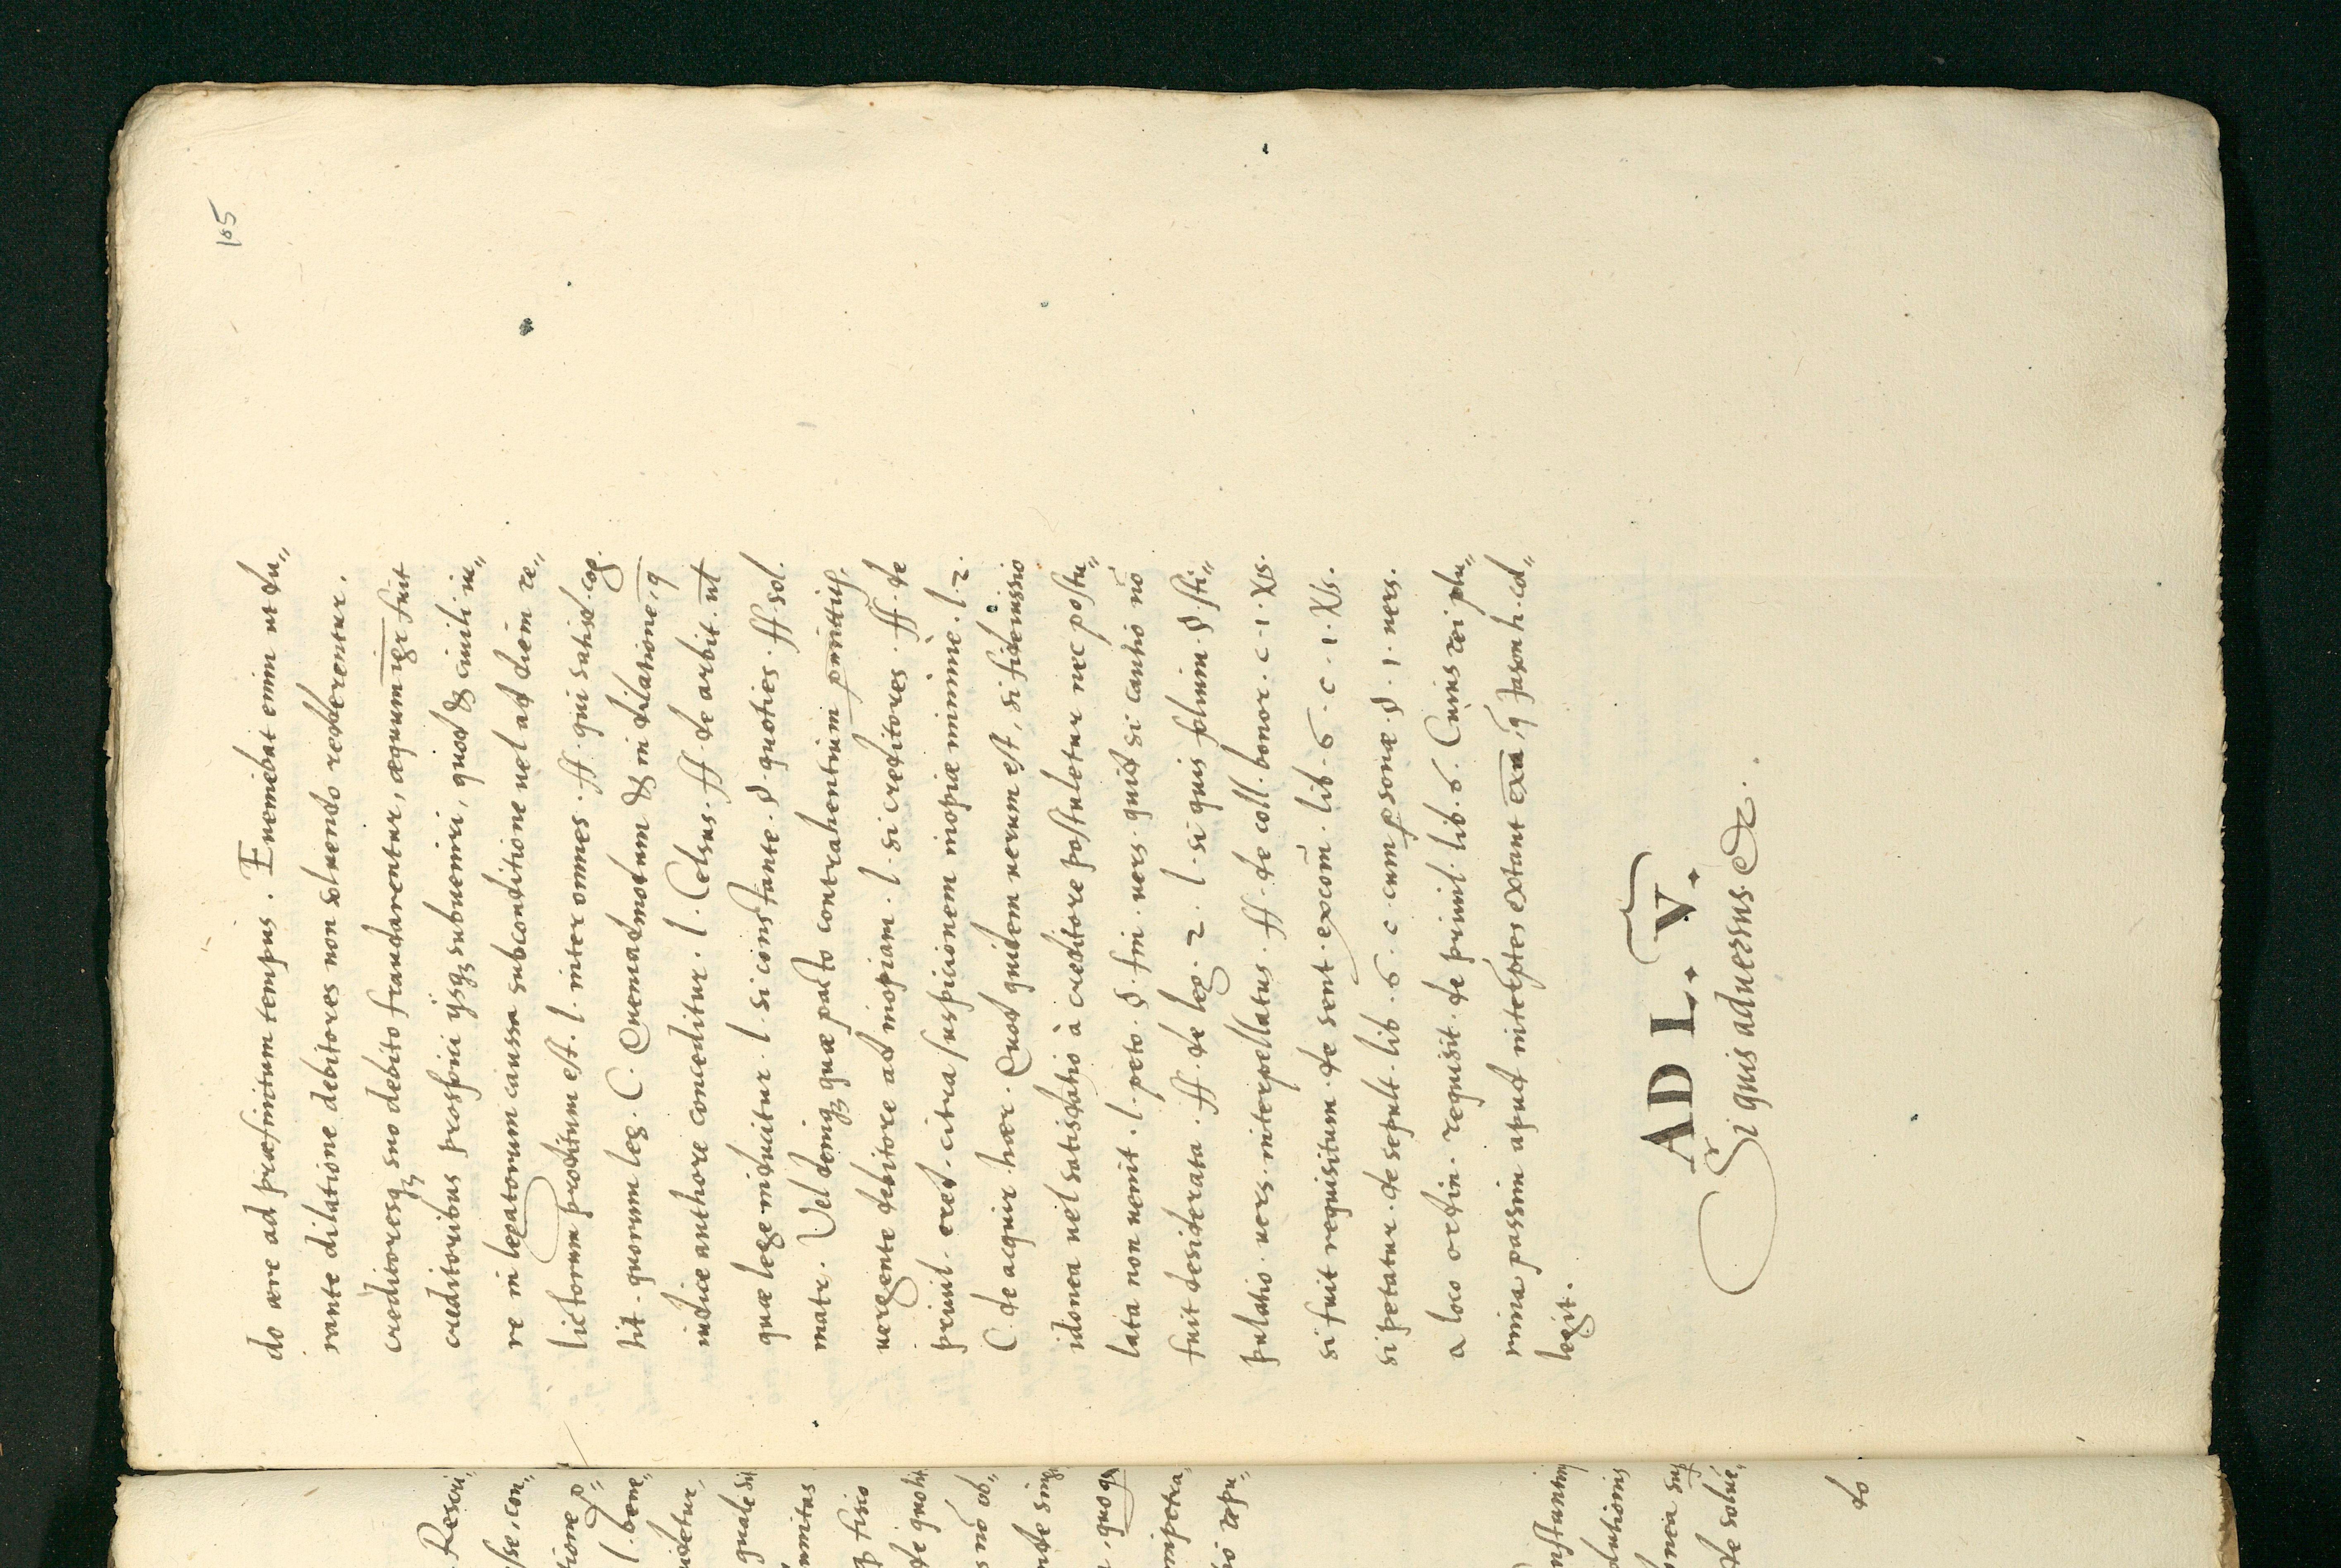 105
do aere ad praefinitum tempus. Eueniebat enim ut du„
rante dilatione debitores non soluendo redderentur.
creditoresq; suo debito fraudarentur, aequum igr fuit
creditoribus prospici ijsq; subueniri, quod & ciuili iu„
re in legatorum caussa sub conditione uel ad diem re„
lictorum proditum est. l. inter omnes. ff. qui satisd. cog.
tit. quorum leg. C. Quemadmodum & in dilatione, q
iudice authore conceditur. l. Celsus. ff. de arbit. ut
quae lege inducitur. l. si constante. § quoties. ff. sol.
matr. Vel deniq; quae pacto contrahentium
uergente debitore ad inopiam. l. si creditores. ff. de
priuil. cred. citra suspicionem inopiae minime. l. 2.
C. de acquir. haer. Quod quidem uerum est, si fideiussio
idonea uel satisdatio à creditore postuletur nec postu„
lata non uenit. l. peto. § fin. uers. quid si cautio nō
fuit desiderata. ff. de leg. 2. l. si quis § sti„
pulatio. uers. interpellatus. ff. de coll. bonor. c. 1. Xts.
si fuit requisitum. de sent. excom̄. lib. 6. c. 1. Xts.
si petatur. de sepult. lib. 6. c. cum psonae. § 1. uers.
a loco ordin. requisit. de priuil. lib. 6. Cuius rei plu„
rima passim apud intēptes extant exa, q Jason h. col„
legit.
AD L. V.
Si quis aduersus &c.
Rescri„
sse, con„
tione p„
l. bene„
uidetur„
quale sit
unitas
fisio
de quoti
s nō ob„
nde sing
, quoq
impetra„
io repu„
nstantin
olutionis
nea sup
de solue„
do